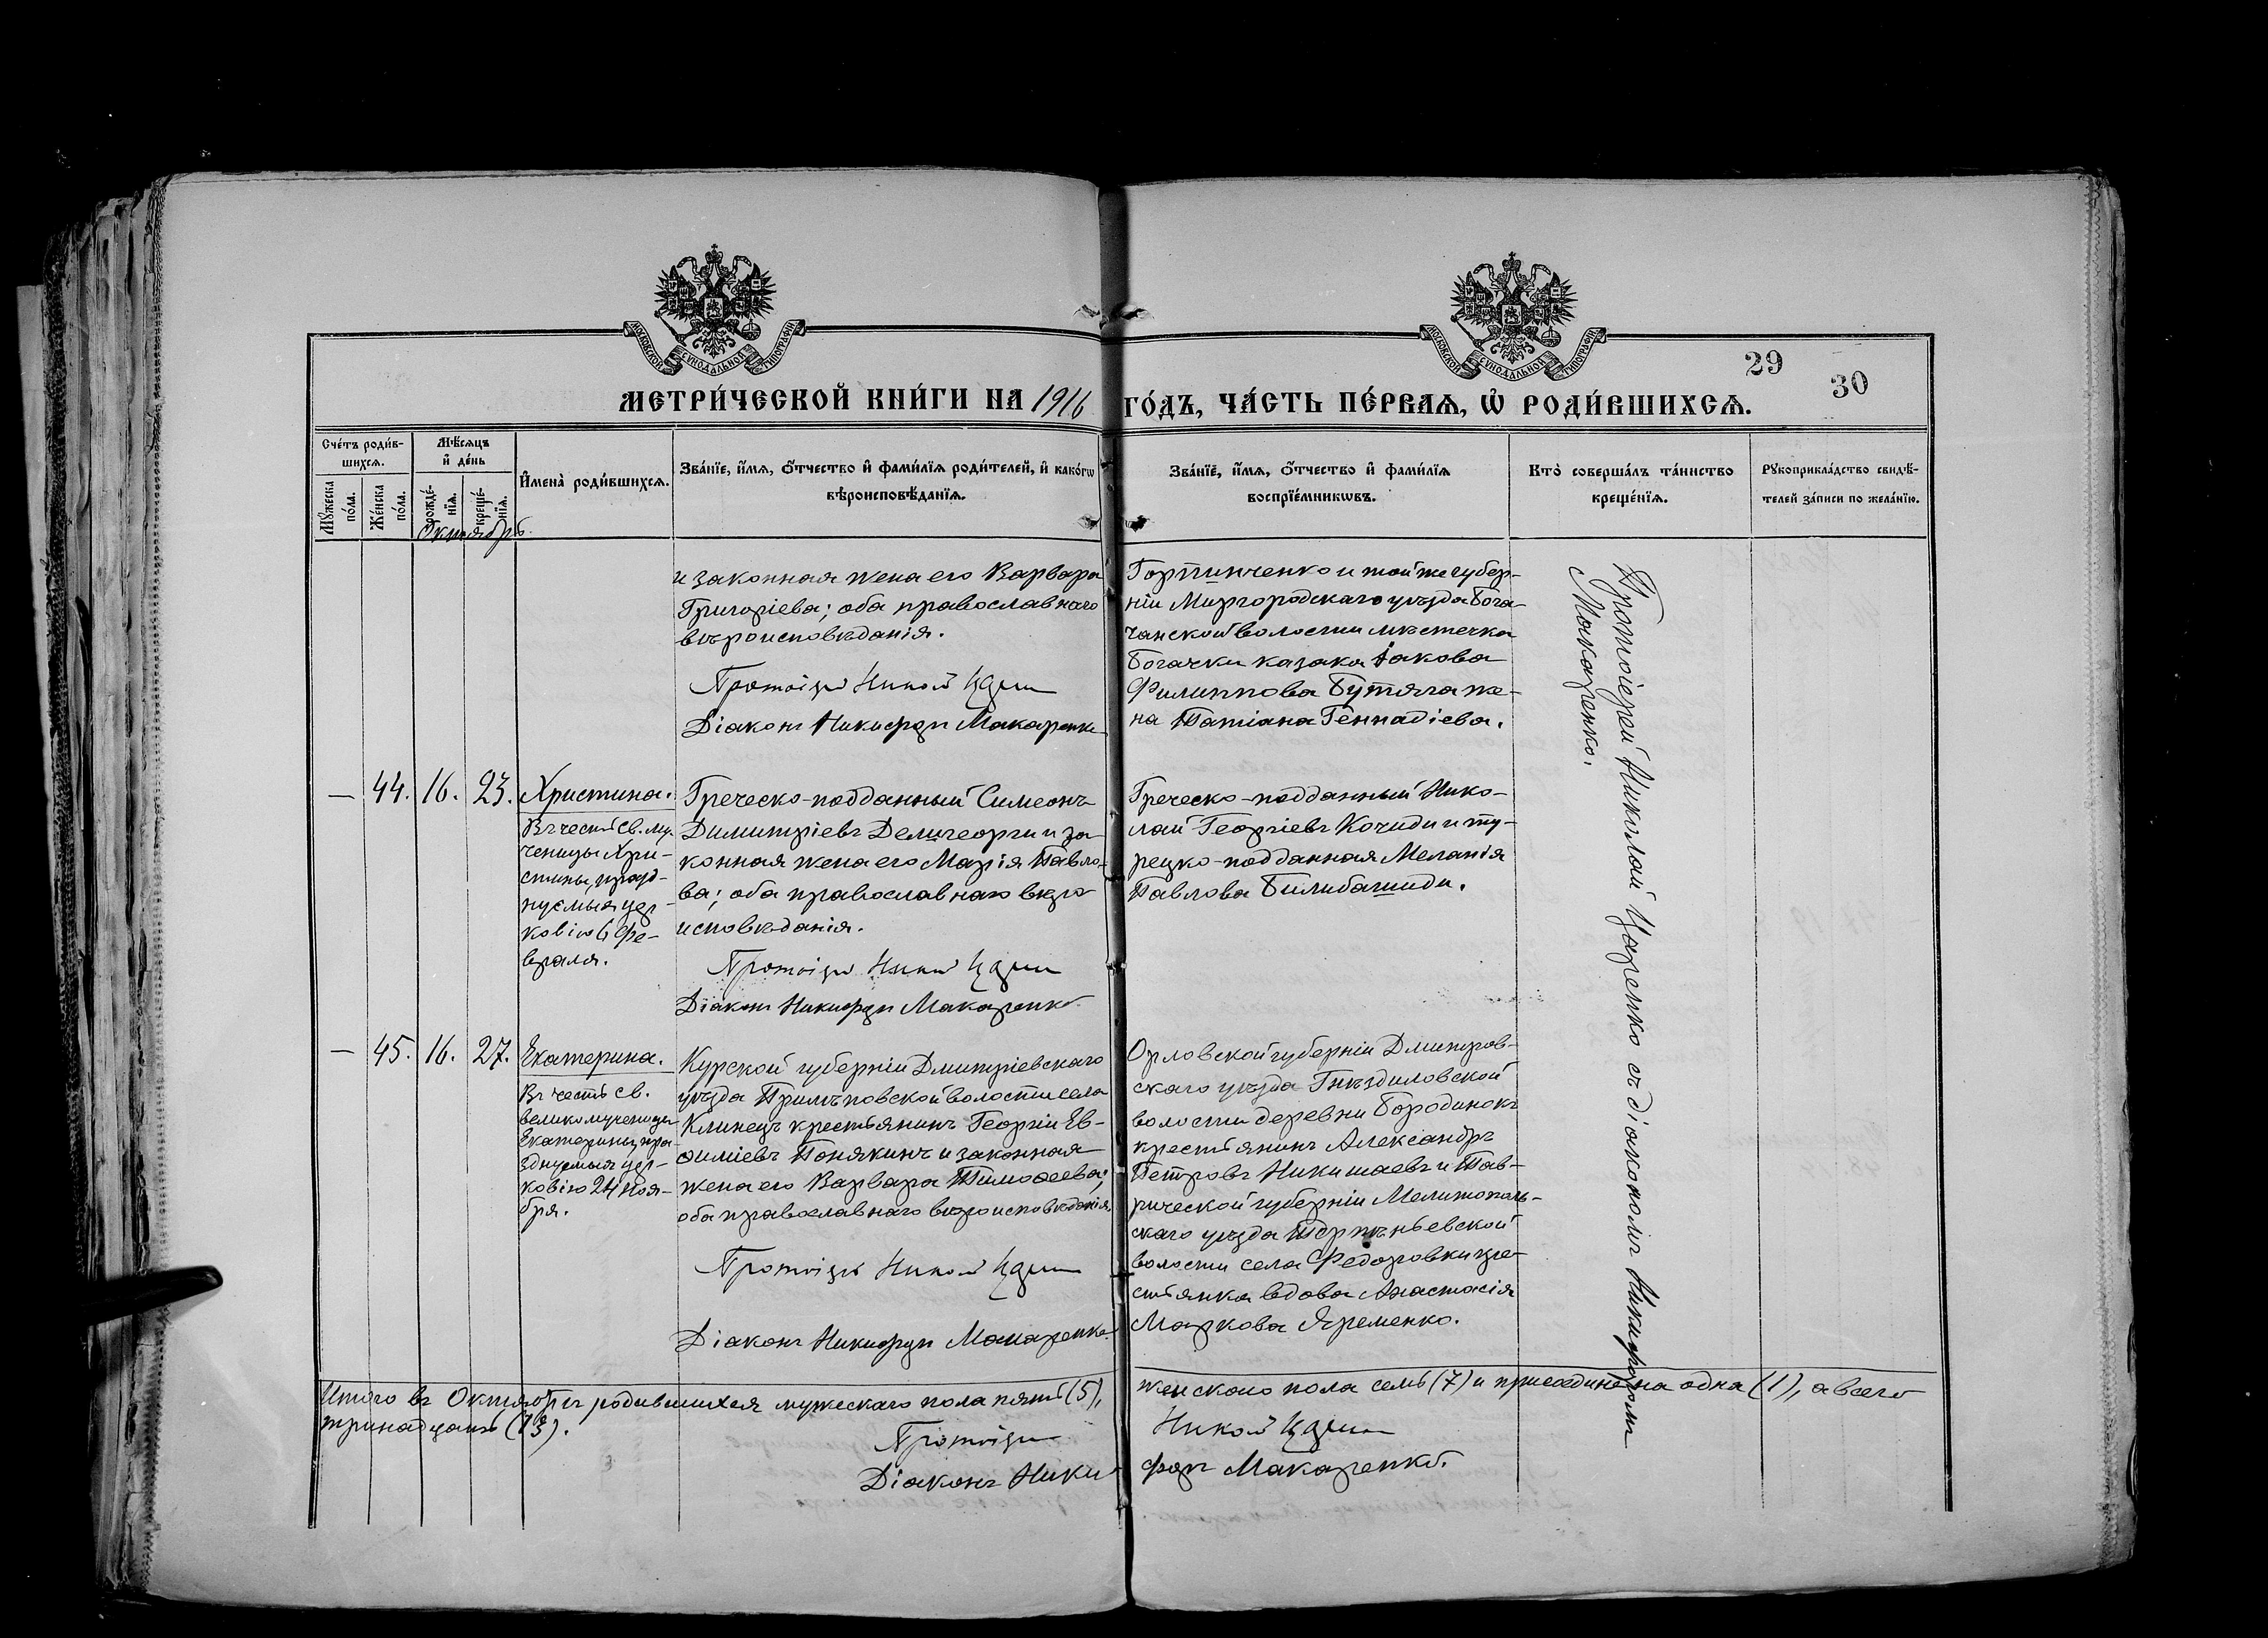 МОСКОВСКОЙ СѴНОДАЛЬНОЙ ТИПОГРАФІИ
МОСКОВСКОЙ СѴНОДАЛЬНОЙ ТИПОГРАФІИ
29
30
МЕТРИ́ЧЕСКОЙ КНИ́ГИ НА 1916 ГО́ДЪ, ЧА́СТЬ ПЕ́РВАѦ, Ѡ҆ РОДИ́ВШИХСѦ.
Сче́тъ роди́в-
шихсѧ.
Мꙋ́жеска по́ла.
Же́нска по́ла.
Мѣ́сѧцъ
и҆ де́нь
рожде́-нїѧ.
креще́-нїѧ.
Октябрь.
И҆мена̀ роди́вшихсѧ.
Зва́нїе, и҆́мѧ, ѻ҆́тчество и҆ фами́лїѧ роди́телей, и҆ како́гѡ
вѣроисповѣ́данїѧ.
Зва́нїе, и҆́мѧ, ѻ҆́тчество и҆ фами́лїѧ
воспрїе́мникѡвъ.
Кто̀ соверша́лъ та́инство
креще́нїѧ.
Рꙋкоприкла́дство свидѣ́-
телей за́писи по жела́нїю.
и законная жена его Варвара
Григоріева; оба православнаго
вѣроисповѣданія.
Протоіерей Николай Царенко
Діаконъ Никифоръ Макаренко
Горпинченко и той же губер-
ніи Миргородскаго уѣзда Бога-
чанской волости мѣстечка
Богачки казака Іакова
Филиппова Бутяга же-
на Татіана Геннадіева.
Протоіерей Николай Царенко съ діакономъ Никифоромъ
Макаренко.
— 44. 16. 23. Христина.
Въ честь св. му-
ченицы Хри-
стины, празд-
нуемыя цер-
ковію 6 Фе-
враля.
Греческо-подданный Симеонъ
Димитріевъ Делигеорги и за-
конная жена его Марія Павло-
ва; оба православнаго вѣро-
исповѣданія.
Протоіерей Николай Царенко
Діаконъ Никифоръ Макаренко
Греческо-подданный Нико-
лай Георгіевъ Кочиди и ту-
рецко-подданная Меланія
Павлова Билибашиди.
— 45. 16. 27. Екатерина.
Въ честь св.
великомученицы
Екатерины, пра-
зднуемыя цер-
ковію 24 Ноя-
бря.
Курской губерніи Дмитріевскаго
уѣзда Прилѣповской волости села
Клинецъ крестьянинъ Георгій Ев-
ѳиміевъ Понякинъ и законная
жена его Варвара Тимоѳеева;
оба православнаго вѣроисповѣданія.
Протоіерей Николай Царенко
Діаконъ Никифоръ Макаренко
Орловской губерніи Дмитров-
скаго уѣзда Гнѣздиловской
волости деревни Бородинокъ
крестьянинъ Александръ
Петровъ Никишаевъ и Тав-
рической губерніи Мелитополь-
скаго уѣзда
волости села Федоровки кре-
стьянка вдова Анастасія
Маркова Яременко.
Итого въ Октябрѣ родившихся мужескаго пола пять (5), женскаго пола семь (7) и присоединена одна (1), а всего
тринадцать (13).
Протоіерей Николай Царенко
Діаконъ Никифоръ Макаренко.